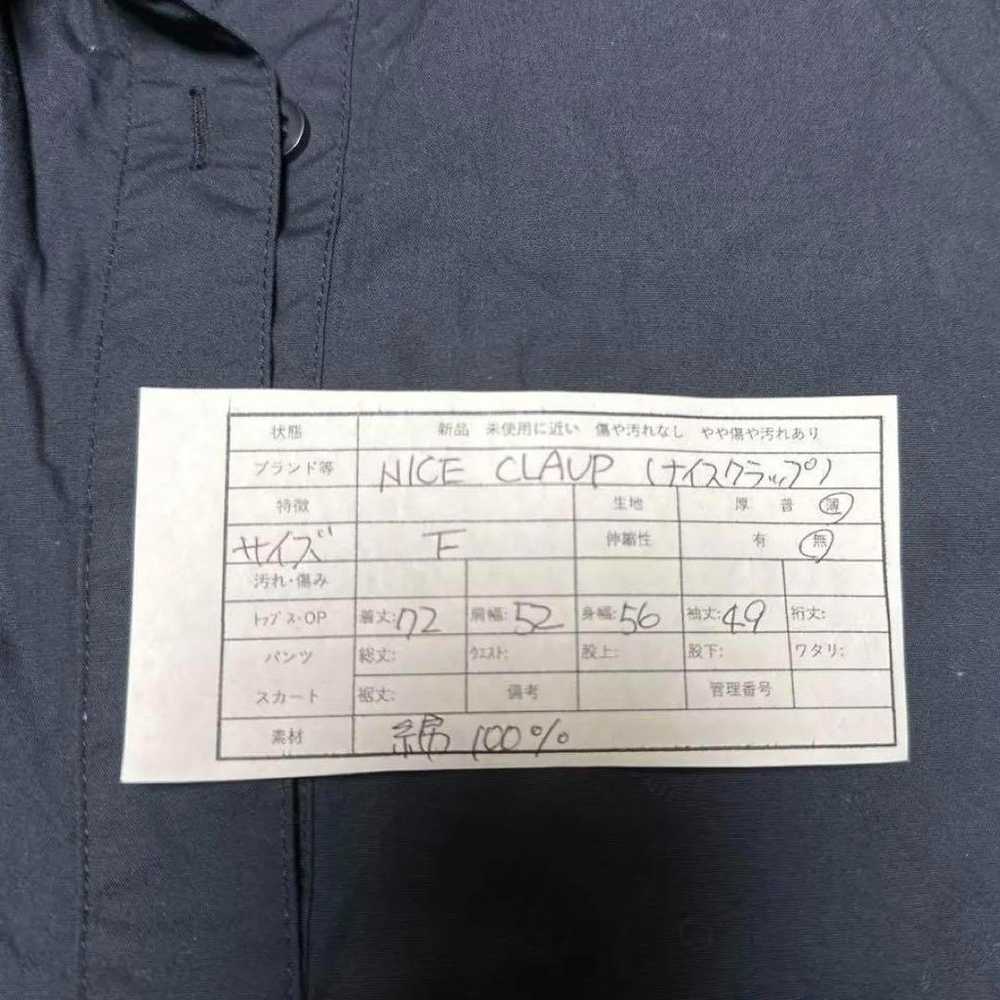 状態 新品 未使用に近い 傷や汚れなし やや傷や汚れあり
ブランド等 NICE CLAUP (ナイスクラップ)
特徴 生地 厚 普 薄
サイズ F 伸縮性 有 無
汚れ・傷み
トップス・OP 着丈:72 肩幅:52 身幅:56 袖丈:49 裄丈:
パンツ 総丈: ウエスト: 股上: 股下: ワタリ:
スカート 裾丈: 備考 管理番号
素材 綿 100%